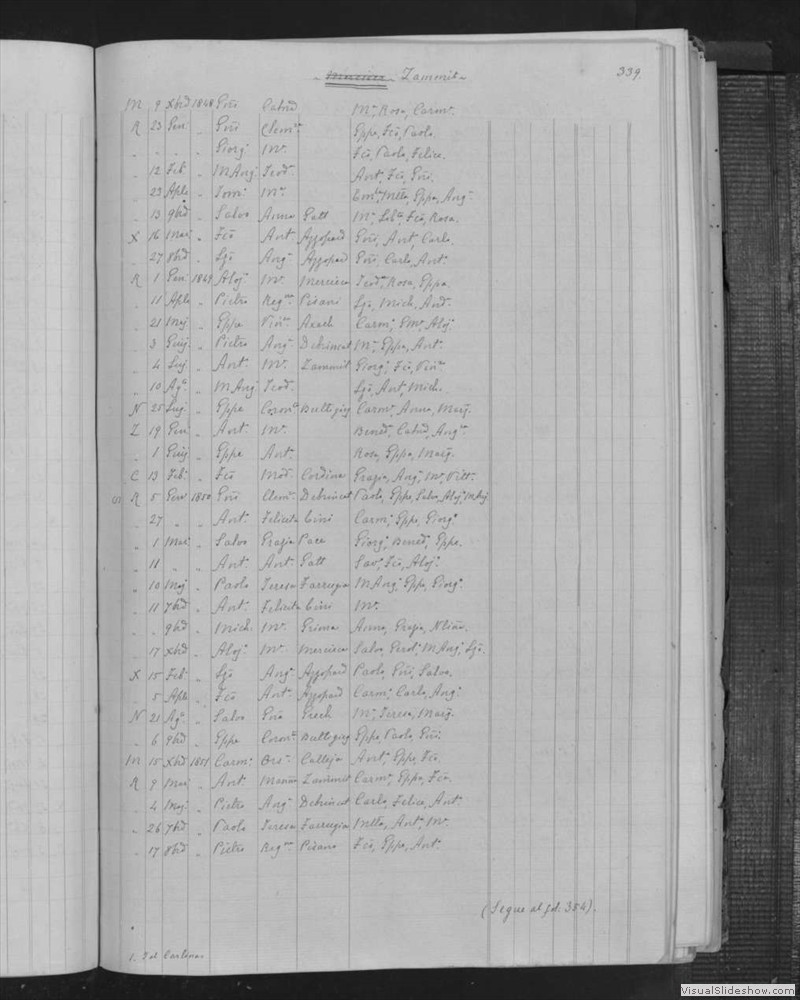 Zammit
339.
M 9 Xbd 1848 Gni Catnd Ma, Rosa, Carmn.
R 23 Gen " Gni Clema Eppo, Fco, Paolo
" " " Giorg. Ma. Fco, Paolo, Felice.
" 12 Feb. " MAng. Teod. Ant, Fco, Gni.
" 23 Aple " Tom. Ma. Eppa, Ang.
" 13 9bd " Salvo Anna Gatt Ma, Fco, Rosa.
X 16 Mar. " Fco Ant. Azzopard Gni, Ant, Carlo.
" 27 8bd " Lgo Ang. Azzopard Gni, Carlo, Ant.
R 1 Gen 1849 Aloj. Ma. Mercieca Teod, Rosa, Eppa.
" 11 Aple " Pietro Regna Pisani Lgo, Mich, And.
" 21 Maj. " Eppo Vinca Axach Carm, Aloj.
" 3 Giuj. " Pietro Ang. Debrincat Ma, Eppa, Ant.
" 4 Luj. " Ant. Ma. Zammit Giorg, Fco, Vinca
" 10 Aga " MAng. Teod. Lgo, Ant, Mich.
N 25 Lug. " Eppo Corona Buttigieg Carmn, Anna, Marg.
Z 19 Gen " Ant. Ma. Bened, Catnd, Anga.
" 1 Giuj " Eppo Ant. Rosa, Eppa, Marg.
C 13 Feb. " Fco Mad. Cordina Grazia, Ang, Ma, Vitt.
S R 5 Gen 1850 Gni Clem. Debrincat Paolo, Eppo, Salvo, Aloj, MAng
" 27 " " Ant. Felicita Cini Carm, Eppo, Giorg.
" 1 Mar. " Salvo Grazia Pace Giorg, Bened, Eppo.
" 11 " " Ant. Ant. Gatt Sav, Fco, Aloj.
" 10 Maj " Paolo Teresa Farrugia MAng, Eppo, Giorg.
" 11 7bd " Ant. Felicita Cini Ma.
" " 9bd " Mich. Ma. Grima Anna, Grazia,
" 17 Xbd " Aloj. Ma. Mercieca Salvo, Ferd, MAng, Lgo.
X 15 Feb. " Lgo Ang. Azzopard Paolo, Gni, Salvo.
" 5 Aple " Fco Ant. Azzopard Carm, Carlo, Ang.
N 21 Aga " Salvo Gna Grech Ma, Teresa, Marg.
" 6 9bd " Eppo Corona Buttigieg Eppo, Paolo, Gni.
M 15 Xbd 1851 Carm. Ors. Calleja Ant, Eppo, Fco.
R 9 Mar " Ant. Marina Zammit Carmn, Eppo, Fco.
" 4 Maj. " Pietro Ang. Debrincat Carlo, Felice, Ant.
" 26 7bd " Paolo Teresa Farrugia Ant, Ma.
" 17 8bd " Pietro Regna Pisano Fco, Eppo, Ant.
(Segue al fol. 354).
VisualSlideshow.com